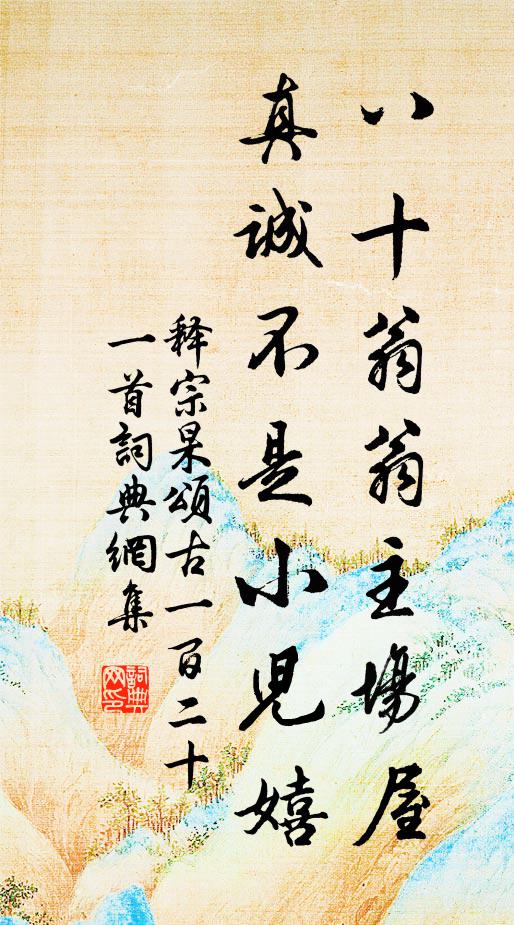 八十翁翁主場屋
真誠不是小兒嬉
释宗杲頌古一百二十
一首詞典網集
詞典
网印